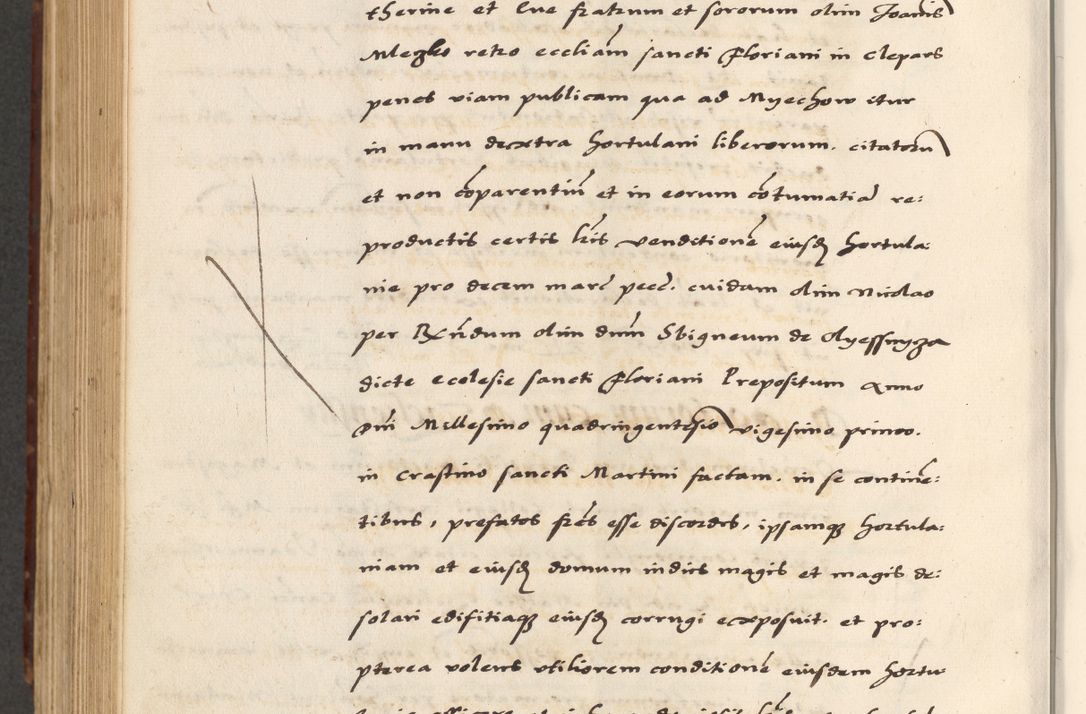 therine et Eve fratrum et sororum olim Joannis
Mlezko retro eccliam sancti Floriani in Clepars
penes viam publicam qua ad Myechow itur
in manu dextra hortulani liberorum. citatoru
et non coparentiu et in eorum cotumatia re:
productis certis lris venditione eiusdem hortula:
nie pro decem marc pecc. cuidam olim Nicolao
per Rndum olim dnm Sbigneum de Olyessnycza
dicte ecclesie sancti Floriani Prepositum Anno
Dni Millesimo quadringentesio vigesimo primo.
in Crastino sancti Martini factam. in se contine:
tibus, prefatos fres esse discordes, ipsamque hortula:
niam et eiusdem domum indies magis et magis de:
solari edifitiaque eiusdem corrugi exposuit. et pro:
pterea volens utiliorem conditione eiusdem hortu